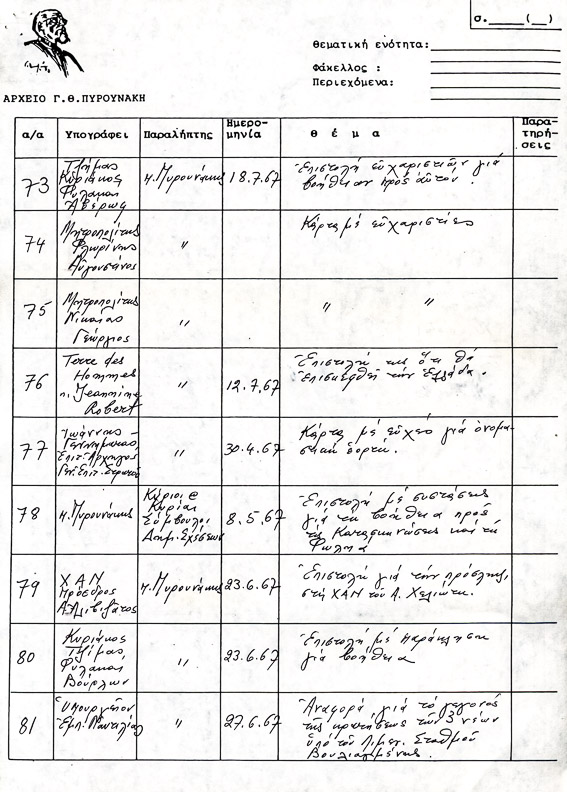 σ.____(__)
Θεματική ενότητα:
Φάκελλος :
Περιεχόμενα:
ΑΡΧΕΙΟ Γ.Θ.ΠΥΡΟΥΝΑΚΗ
α/α Υπογράφει Παραλήπτης Ημερομηνία θέμα Παρατηρήσεις
73
Τζήμας
Κυριάκος
Φυλακαί
Αβέρωφ
π. Πυρουνάκης
18.7.67
Ἐπιστολή εὐχαριστιῶν γιά
βοήθειαν πρός αὐτόν.
74
Μητροπολίτης
Φλωρίνης
Αὐγουστῖνος
"
Κάρτα μέ εὐχαριστίες
75
Μητροπολίτης
Νικαίας
Γεώργιος
"
" "
76
Terre des
Hommes
π. Jeannine
Robert
"
12.7.67
Ἐπιστολή ὅτι θά
ἐπισκεφθῆ τήν Ἑλλάδα.
77
Ἰωάννης
Γεννηματᾶς
Ἐπιτ. Ἀρχηγός
Γεν. Ἐπιτ. Στρατοῦ
"
30.4.67
Κάρτα μέ εὐχές γιά ὀνομα-
στική ἑορτή.
78
π. Πυρουνάκης
Κύριοι @
Κυρίαι
Σύμβουλοι
Δημ. Σχέσεων
8.5.67
Ἐπιστολή μέ συστάσεις
γιά τη βοήθεια πρός
τίς Κατασκηνώσεις καί τή
Φωληά
79
ΧΑΝ
Πρόεδρος
Α. Αλιβιζᾶτος
π. Πυρουνάκης
23.6.67
Ἐπιστολή γιά τήν πρόσληψι
στή ΧΑΝ τοῦ Α. Χελιώτη.
80
Κυριάκος
Τζήμας
Φυλακαί
Βούρλων
"
23.6.67
Ἐπιστολή μέ παράκληση
γιά βοήθεια
81
Ὑπουργεῖον
Ἐμπ. Ναυτιλίας
"
27.6.67
Ἀναφορά γιά τό γεγονός
τῆς κρατήσεως τῶν 3 νέων
ὑπό τοῦ Λιμεν. Σταθμοῦ
Βουλιαγμένης.